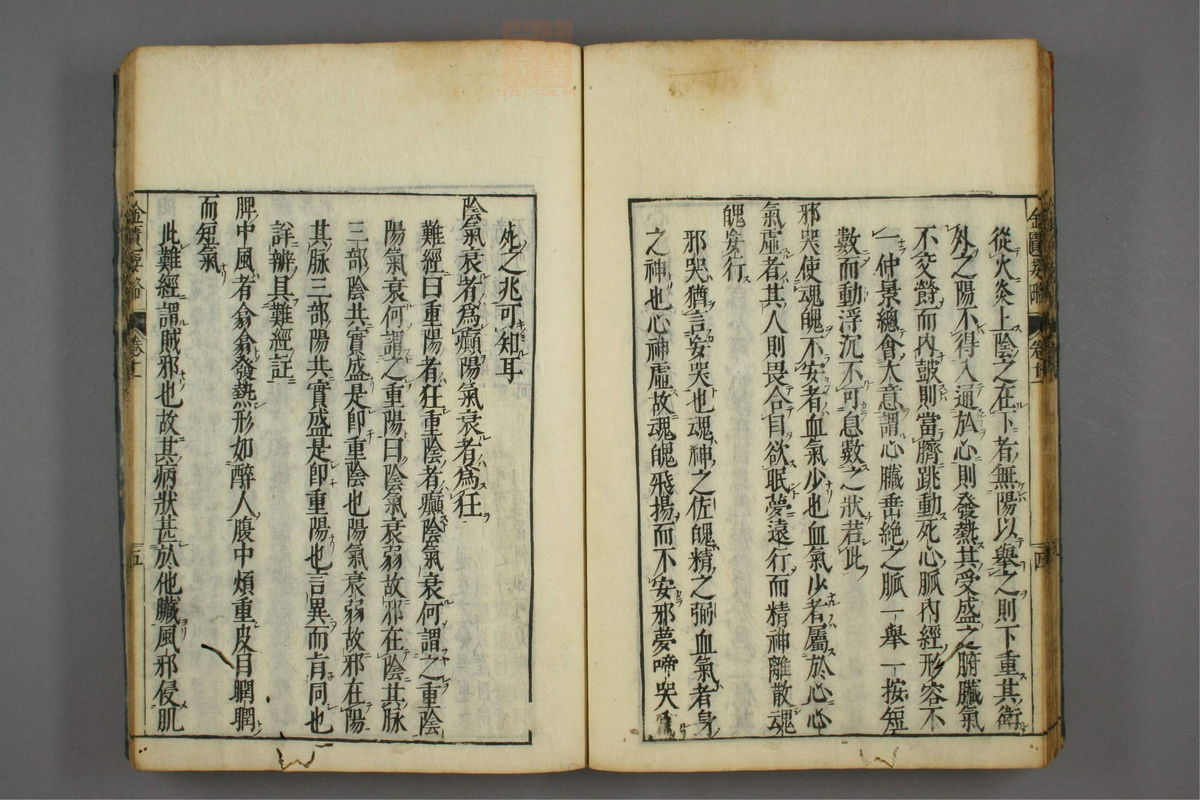 從火炎上陰之在下者無陽以舉之則下重其衛
外之陽不得入通於心則發熱其受盛之腑臟氣
不交欝而內鼓則當臍跳動死心脈內經形容不
一仲景總會大意謂心臟垂絕之脈一舉一按短
數而動浮沉不可息數之狀若此
邪哭使魂魄不安者血氣少也血氣少者屬於心心
氣虛者其人則畏合目欲眠夢遠行而精神離散魂
魄妄行
邪哭猶言妄哭也魂神之佐魄精之弼血氣者身
之神也心神虛故魂魄飛揚而不安邪夢啼哭
死之兆可知耳
陰氣衰者為癲陽氣衰者為狂
難經曰重陽者狂重陰者癲陰氣衰何謂之重陰
陽氣衰何謂之重陽曰陰氣衰弱故邪在陰其脉
三部陰共實盛是即重陰也陽氣衰弱故邪在陽
其脉三部陽共實盛是即重陽也言異而肯同也
詳辨具難經註
脾中風者翕翕發熱形如醉人腹中煩重皮目瞤瞤
而短氣
此難經謂賊邪也故其病狀甚於他臟風邪侵肌